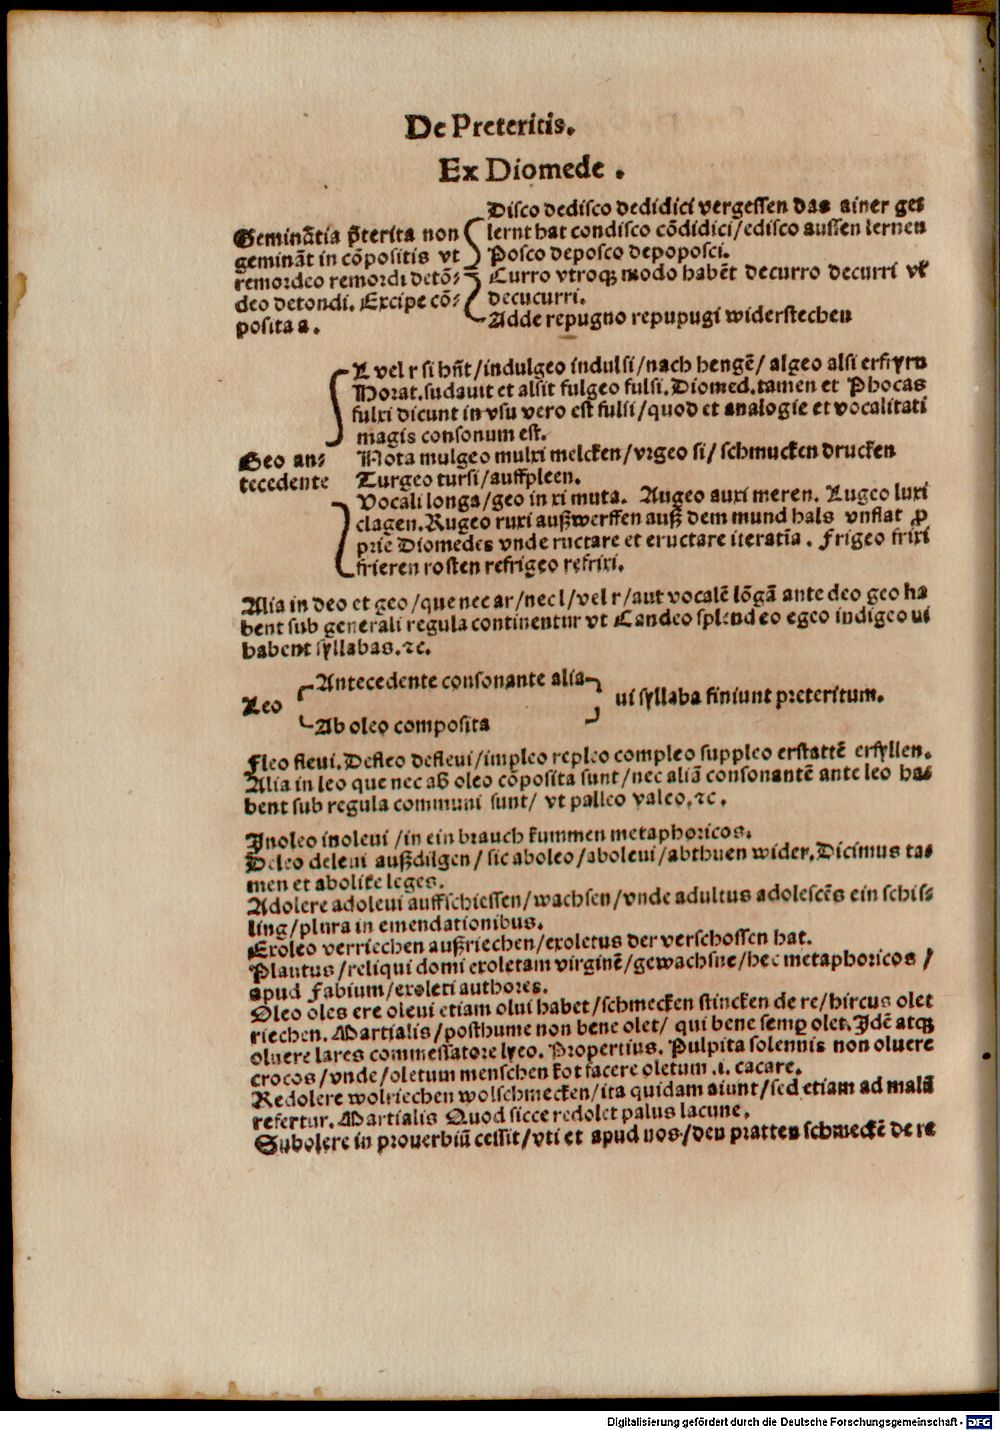 De Preteritis.
Ex Diomede .
Geminãtia p̃terita non
geminãt in cõpositis vt
remordeo remordi detõ⸗
deo detondi. Excipe cõ⸗
posita a .
Disco dedisco dedidici vergessen das ainer gel
lernt hat condisco cõdidici/edisco aussen lernen
Posco deposco depoposci.
Curro vtroq̃ modo habẽt decurro decurri vl̃
decucurri.
Adde repugno repupugi widerstechen
Geo an⸗
tecedente
L vel r si hñt/indulgeo indulsi/nach hengẽ/ algeo alsi erfryrn
Horat. sudauit et alsit fulgeo fulsi. Diomed. tamen et Phocas
fulxi dicunt in vsu vero est fulsi/quod et analogie et vocalitati
magis consonum est.
Nota mulgeo mulxi melcken/vrgeo si/ schmucken drucken
Turgeo tursi/auffpleen.
Vocali longa/geo in xi muta. Augeo auxi meren. Lugeo luxi
clagen. Rugeo ruxi außwerffen auß dem mund hals vnflat ꝓ
prie Diomedes vnde ructare et eructare iteratia . Frigeo frixi
frieren rosten refrigeo refrixi.
Alia in deo et geo/que nec ar/nec l/vel r/aut vocalẽ lõgã ante deo geo ha
bent sub generali regula continentur vt Candeo splendeo egeo indigeo ui
habent syllabas. ⁊c.
Leo
Antecedente consonante alia
Ab oleo composita
ui syllaba finiunt preteritum.
Fleo fleui. Defleo defleui/impleo repleo compleo suppleo erstattẽ erfyllen.
Alia in leo que nec ab oleo cõposita sunt/nec aliã consonantẽ ante leo ha⸗
bent sub regula communi sunt/ vt palleo valeo. ⁊c .
Inoleo inoleui /in ein brauch kummen metaphoricos.
Deleo deleui außdilgen/ sic aboleo/aboleui/abthuen wider. Dicimus ta⸗
men et abolite leges.
Adolere adoleui auffschiessen/wachsen/vnde adultus adolescẽs ein schis⸗
ling/plura in emendationibus.
Exoleo verriechen außriechen/exoletus der verschossen hat.
Plautus/reliqui domi exoletam virginẽ/gewachsne/hec metaphoricos /
apud Fabium/exoleti authores.
Oleo oles ere oleui etiam olui habet/schmecken stincken de re/hircus olet
riechen. Martialis/posthume non bene olet/ qui bene semp̱ olet. Idẽ atq̃
oluere lares commessatore lyeo. Propertius. Pulpita solennis non oluere
crocos/vnde/oletum menschen kot facere oletum .i. cacare.
Redolere wolriechen wolschmecken/ita quidam aiunt/sed etiam ad malũ
refertur. Martialis Quod sicce redolet palus lacune.
Subolere in prouerbiũ cessit/vti et apud nos/den pratten schmeckẽ de re
Digitalisierung gefördert durch die Deutsche Forschungsgemeinschaft - DFG